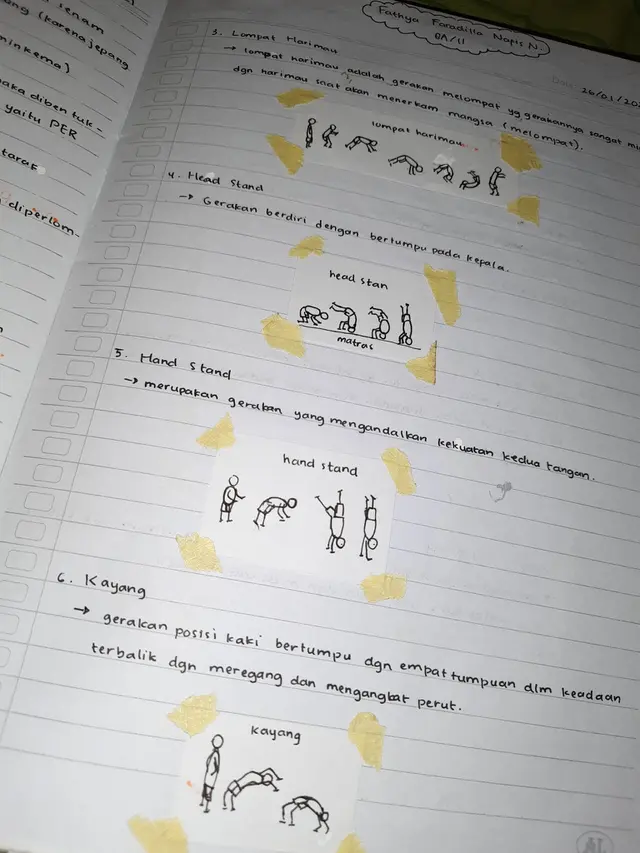 senam
(karena jepang
minkema)
aka diben tuk-
yaitu PER
tarak
diperlom.
Fathya Faradilla Napis N.
8A/11
26/01/20
3. Lompat Harimau
→ lompat harimau adalah gerakan melompat yg gerakannya sangat mi
dgn harimau saat akan menerkam mangsa (melompat).
lompat harimau
4. Head Stand
→ Gerakan berdiri dengan bertumpu pada kepala.
head stan
matras
5. Hand Stand
→ merupakan gerakan yang mengandalkan kekuatan kedua tangan.
hand stand
6. Kayang
→ gerakan posisi kaki bertumpu dgn empat tumpuan dlm keadaan
terbalik dgn meregang dan mengangkat perut.
kayang